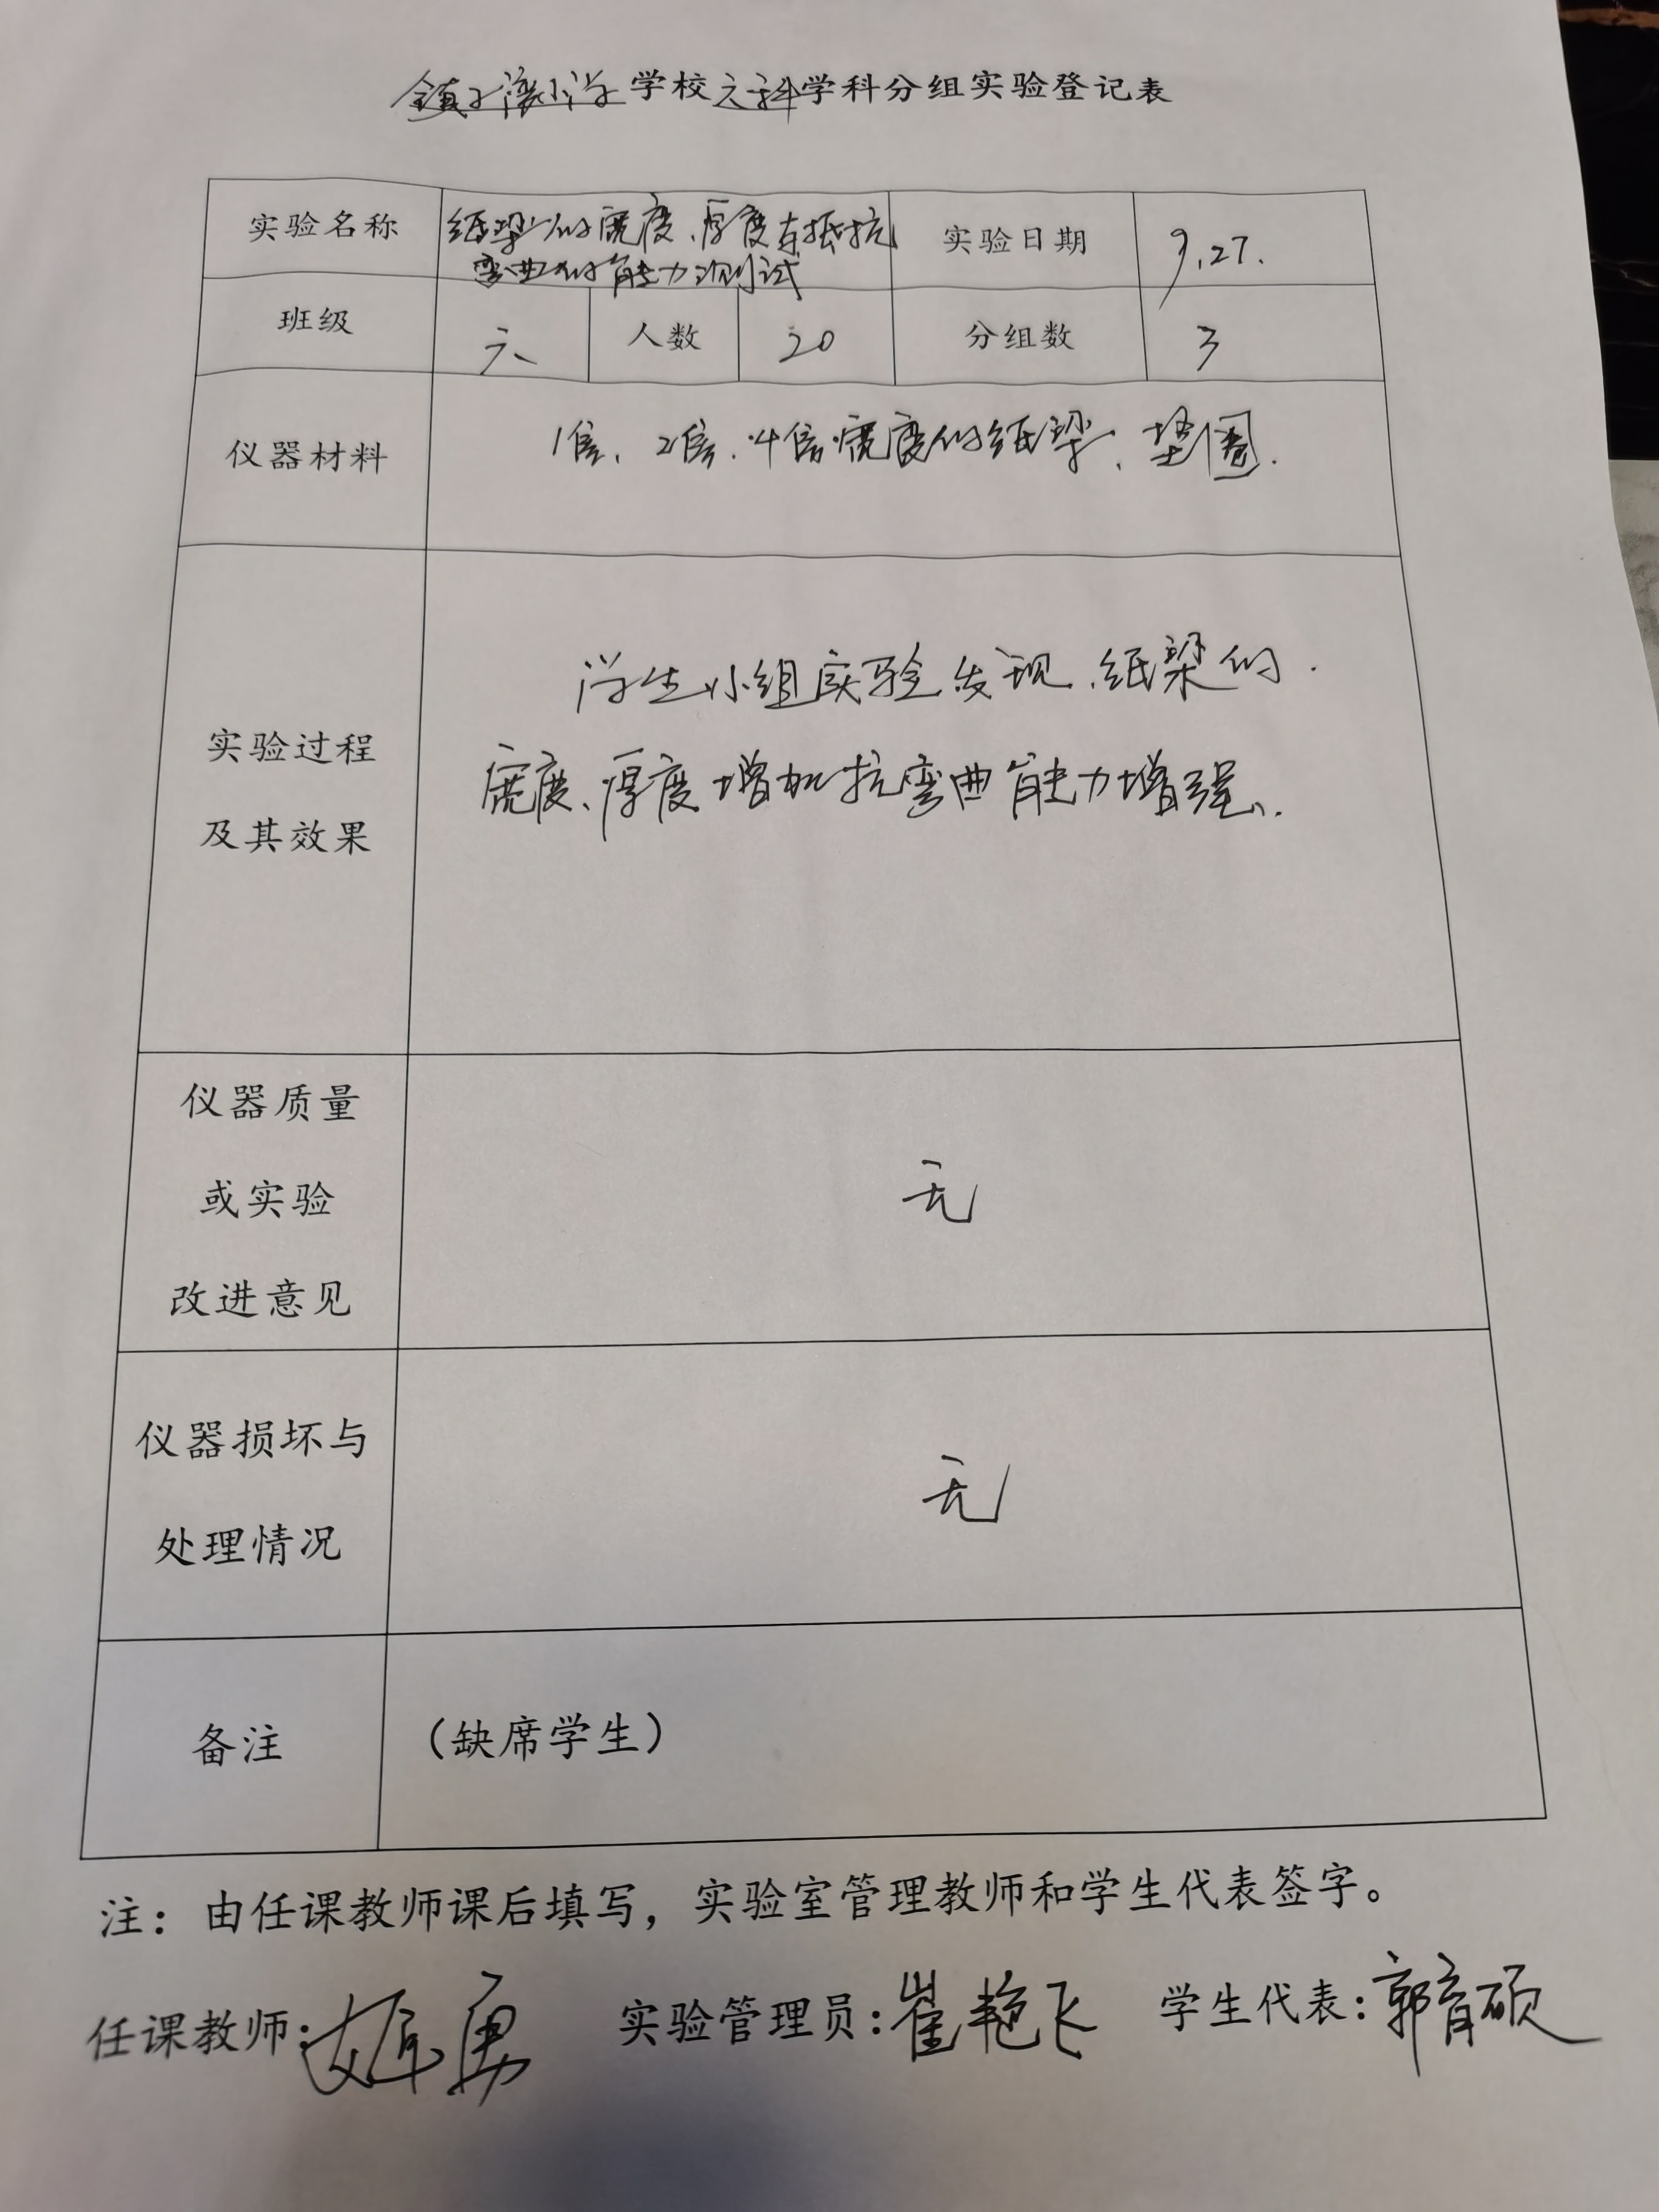 镇子湾小学学校六科学科分组实验登记表
实验名称 纸梁的宽度、厚度与抵抗弯曲的能力测试 实验日期 9.27.
班级 六 人数 20 分组数 3
仪器材料 1倍、2倍、4倍宽度的纸梁、垫圈.
实验过程
及其效果
学生小组实验发现,纸梁的
宽度、厚度增加抗弯曲能力增强.
仪器质量
或实验
改进意见
无
仪器损坏与
处理情况
无
备注 (缺席学生)
注:由任课教师课后填写,实验室管理教师和学生代表签字。
任课教师: 勇 实验管理员:崔艳飞 学生代表:郭育硕